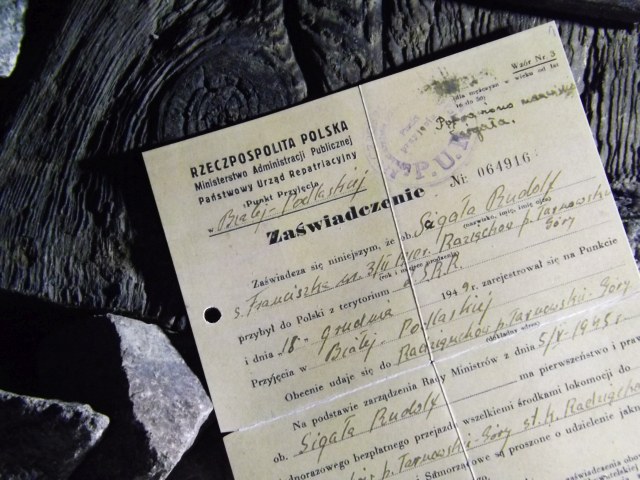 Wzór Nr. 3
w wieku od lat
to do lat
Poprawiono nazwisko
Sigała.
P.U.R.
RZECZPOSPOLITA POLSKA
Ministerstwo Administracji Publicznej
Państwowy Urząd Repatriacyjny
Punkt Przyjęcia
w Białej-Podlaskiej
Nr 064916
Zaświadczenie
Zaświadcza się niniejszym, że ob. Sigała Rudolf
(nazwisko, imię, imię ojca)
s. Franciszka ur. Radzięchów p. Tarnowskie
Góry
przybył do Polski z terytorium Z.S.R.R.
i dnia 18- grudnia 1949 r. zarejestrował się na Punkcie
Przyjęcia w Białej-Podlaskiej
Obecnie udaje się do Radzięchów p. Tarnowskie-Góry
(dokładny adres)
Na podstawie zarządzenia Rady Ministrów z dnia 5/V-1945 r.
ob. Sigała Rudolf ma pierwszeństwo i praw
jednorazowego bezpłatnego przejazdu wszelkimi środkami lokomocji do
p. Tarnowskie-Góry st. k. Radzięchów
i Samorządowe są proszone o udzielenie